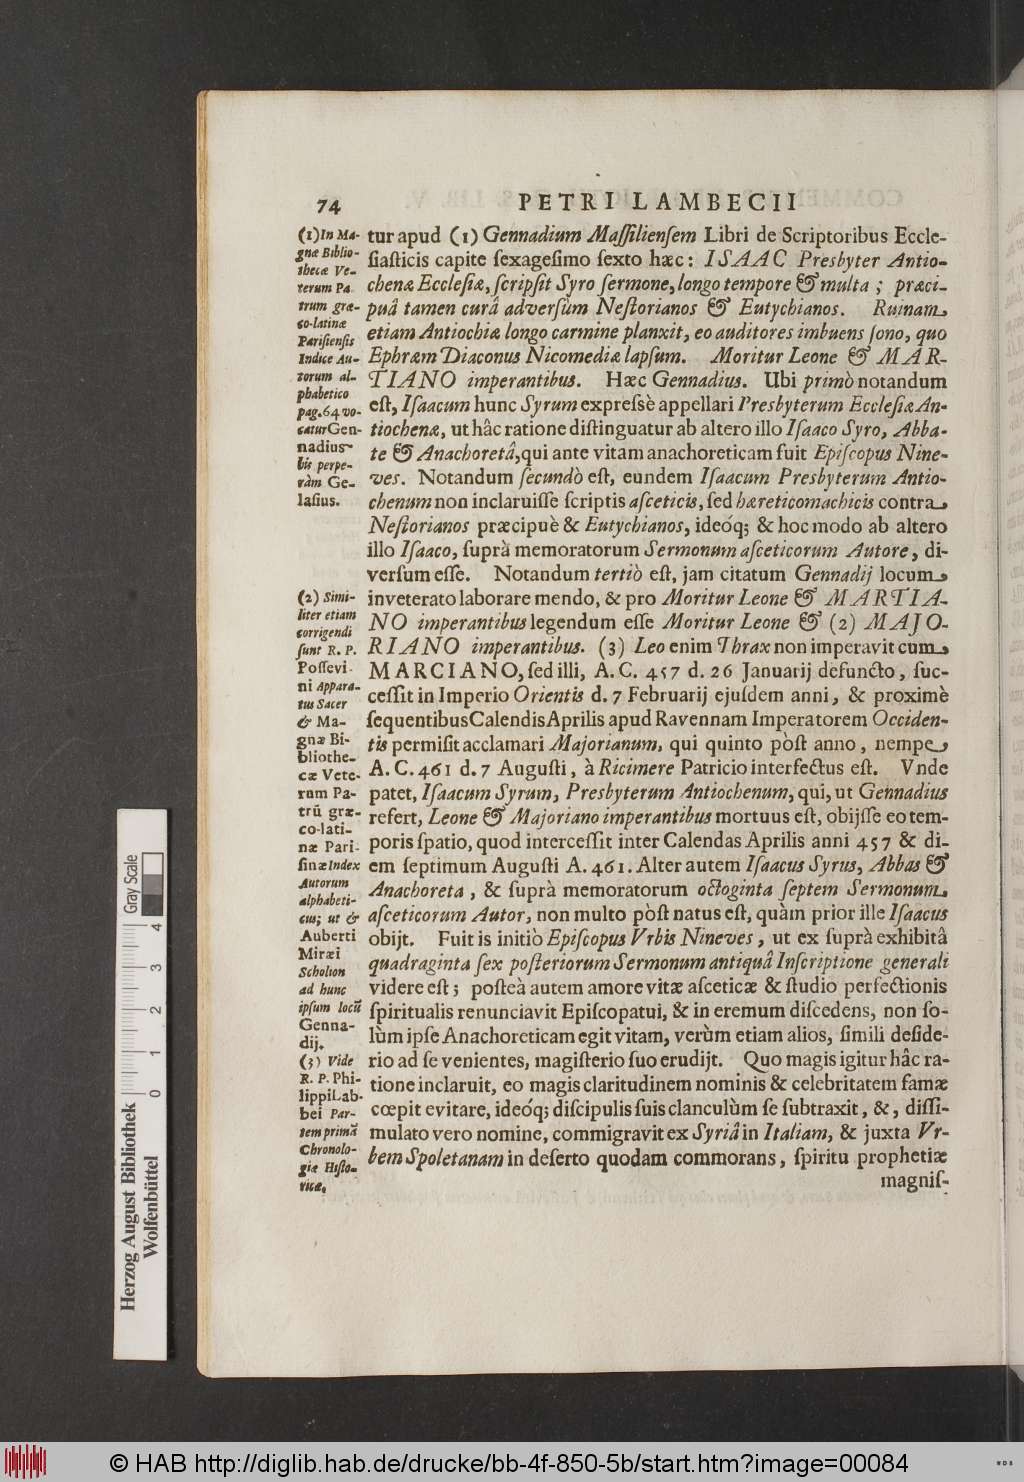 74
PETRI LAMBECII
tur apud (1) Gennadium Maſſilienſem Libri de Scriptoribus Eccle-
ſiaſticis capite ſexageſimo ſexto hæc: ISAAC Presbyter Antio-
chenæ Eccleſiæ, ſcripſit Syro ſermone, longo tempore & multa ; præci-
puâ tamen curâ adverſùm Neſtorianos & Eutychianos. Ruinam
etiam Antiochiæ longo carmine planxit, eo auditores imbuens ſono, quo
Ephræm Diaconus Nicomediæ lapſum. Moritur Leone & MAR-
TIANO imperantibus. Hæc Gennadius. Ubi primò notandum
eſt, Iſaacum hunc Syrum expreſsè appellari Presbyterum Eccleſiæ An-
tiochenæ, ut hâc ratione diſtinguatur ab altero illo Iſaaco Syro, Abba-
te & Anachoretâ, qui ante vitam anachoreticam fuit Epiſcopus Nine-
ves. Notandum ſecundò eſt, eundem Iſaacum Presbyterum Antio-
chenum non inclaruiſſe ſcriptis aſceticis, ſed hæreticomachicis contra
Neſtorianos præcipuè & Eutychianos, ideóq; & hoc modo ab altero
illo Iſaaco, ſuprà memoratorum Sermonum aſceticorum Autore, di-
verſum eſſe. Notandum tertiò eſt, jam citatum Gennadij locum
inveterato laborare mendo, & pro Moritur Leone & MARTIA-
NO imperantibus legendum eſſe Moritur Leone & (2) MAJO-
RIANO imperantibus. (3) Leo enim Thrax non imperavit cum
MARCIANO, ſed illi, A. C. 457 d. 26 Januarij defuncto, ſuc-
ceſſit in Imperio Orientis d. 7 Februarij ejuſdem anni, & proximè
ſequentibus Calendis Aprilis apud Ravennam Imperatorem Occiden-
tis permiſit acclamari Majorianum, qui quinto pòſt anno, nempe
A. C. 461 d. 7 Auguſti, à Ricimere Patricio interfectus eſt. Vnde
patet, Iſaacum Syrum, Presbyterum Antiochenum, qui, ut Gennadius
refert, Leone & Majoriano imperantibus mortuus eſt, obijſſe eo tem-
poris ſpatio, quod interceſſit inter Calendas Aprilis anni 457 & di-
em ſeptimum Auguſti A. 461. Alter autem Iſaacus Syrus, Abbas &
Anachoreta, & ſuprà memoratorum octoginta ſeptem Sermonum
aſceticorum Autor, non multo pòſt natus eſt, quàm prior ille Iſaacus
obijt. Fuit is initiò Epiſcopus Vrbis Nineves, ut ex ſuprà exhibitâ
quadraginta ſex poſteriorum Sermonum antiquâ Inſcriptione generali
videre eſt; poſteà autem amore vitæ aſceticæ & ſtudio perfectionis
ſpiritualis renunciavit Epiſcopatui, & in eremum diſcedens, non ſo-
lùm ipſe Anachoreticam egit vitam, verùm etiam alios, ſimili deſide-
rio ad ſe venientes, magiſterio ſuo erudijt. Quo magis igitur hâc ra-
tione inclaruit, eo magis claritudinem nominis & celebritatem famæ
cœpit evitare, ideóq; diſcipulis ſuis clanculùm ſe ſubtraxit, &, diſſi-
mulato vero nomine, commigravit ex Syriâ in Italiam, & juxta Vr-
bem Spoletanam in deſerto quodam commorans, ſpiritu prophetiæ
magniſ-
(1) In Ma-
gnæ Biblio-
thecæ Ve-
terum Pa-
trum græ-
co-latinæ
Pariſienſis
Indice Au-
torum al-
phabetico
pag. 64 vo-
catur Gen-
nadius
bis perpe-
ràm Ge-
laſius.
(2) Simi-
liter etiam
corrigendi
ſunt R. P.
Poſſevi-
ni Appara-
tus Sacer
& Ma-
gnæ Bi-
bliothe-
cæ Vete-
rum Pa-
trū græ-
co-lati-
næ Pari-
ſinæ Index
Autorum
alphabeti-
cus; ut &
Auberti
Miræi
Scholion
ad hunc
ipſum locū
Genna-
dij.
(3) Vide
R. P. Phi-
lippi Lab-
bei Par-
tem primā
Chronolo-
giæ Hiſto-
ricæ.
Gray Scale
0 1 2 3 4
Herzog August Bibliothek
Wolfenbüttel
© HAB http://diglib.hab.de/drucke/bb-4f-850-5b/start.htm?image=00084